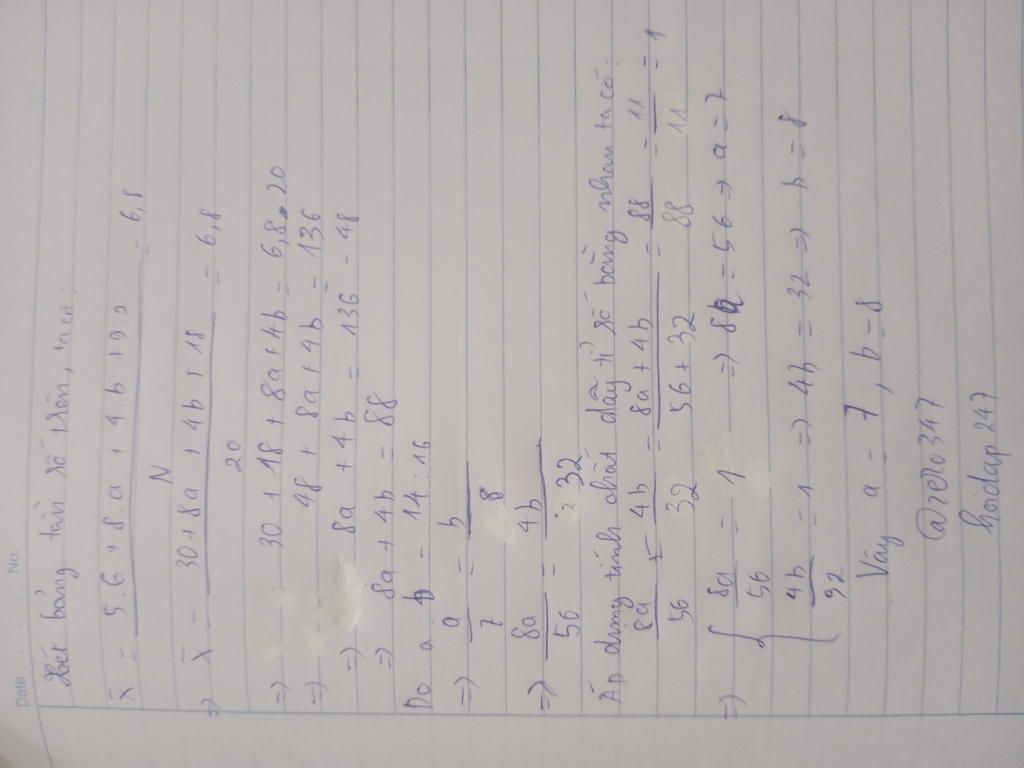 Date : No.
Xét bảng tần số trên, ta có:
X̄ = 5.6 + 8.a + 4.b + 9.2 / N = 6,8
=> X̄ = 30 + 8a + 4b + 18 / 20 = 6,8
=> 30 + 18 + 8a + 4b = 6,8.20
=> 48 + 8a + 4b = 136
=> 8a + 4b = 136 - 48
=> 8a + 4b = 88
Do a : b = 14 : 16
=> a / 7 = b / 8
=> 8a / 56 = 4b / 32
Áp dụng tính chất dãy tỉ số bằng nhau ta có:
8a / 56 = 4b / 32 = 8a + 4b / 56 + 32 = 88 / 88 = 11 / 11 = 1
=> { 8a / 56 = 1 => 8a = 56 => a = 7
4b / 32 = 1 => 4b = 32 => b = 8
Vậy a = 7, b = 8
@zero347
hoidap247